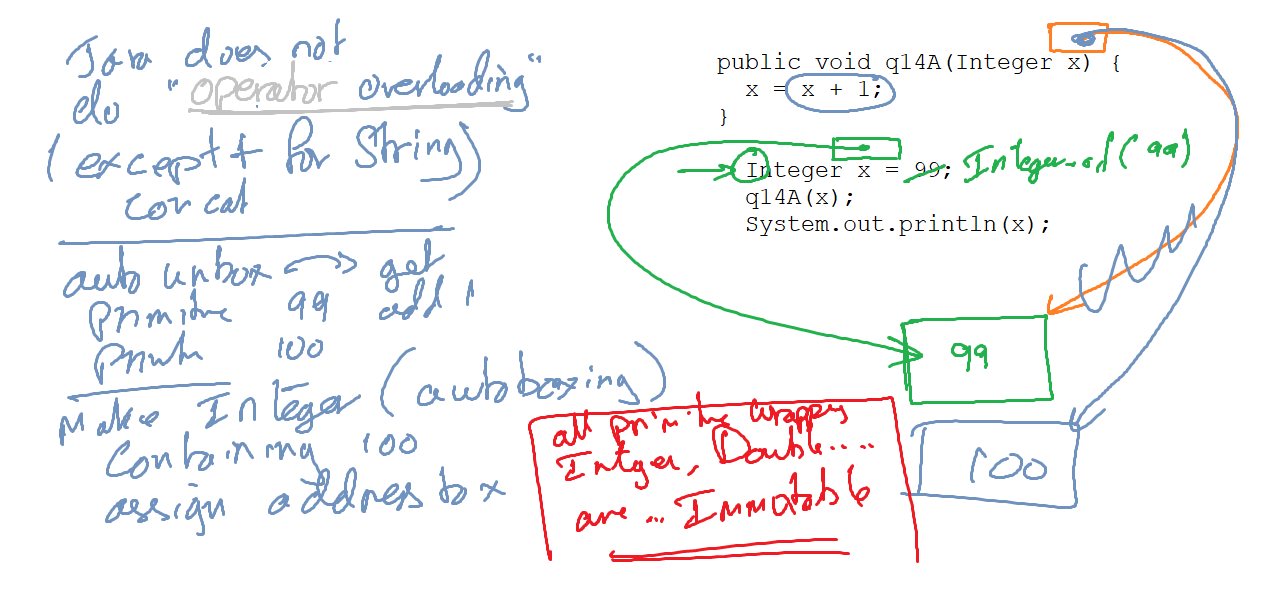 Java does not
do "operator overloading"
(except + for String)
concat
auto unbox get
primitive 99 add 1
100
Make Integer (autoboxing)
Containing 100
assign address to x
public void q14A(Integer x) {
x = x + 1;
}
Integer x = 99; Integer.of(99)
q14A(x);
System.out.println(x);
99
100
all primitive wrappers
Integer, Double....
are ... Immutable